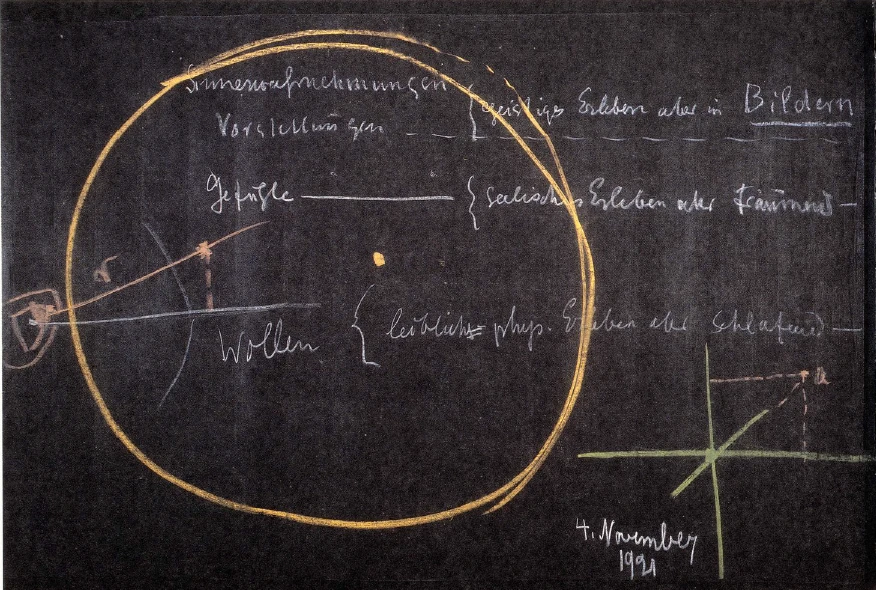 Sinneswahrnehmungen { geistiges Erleben aber in Bildern
Vorstellungen
Gefühle { Seelisches Erleben aber träumend
Wollen { leiblich phys. Erleben aber schlafend
a
4. November
1921